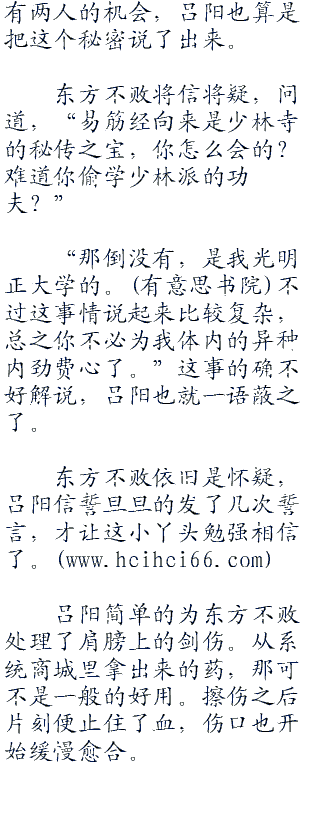 有两人的机会，吕阳也算是
把这个秘密说了出来。
东方不败将信将疑，问
道，“易筋经向来是少林寺
的秘传之宝，你怎么会的？
难道你偷学少林派的功
夫？”
“那倒没有，是我光明
正大学的。(有意思书院)不
过这事情说起来比较复杂，
总之你不必为我体内的异种
内劲费心了。”这事的确不
好解说，吕阳也就一语蔽之
了。
东方不败依旧是怀疑，
吕阳信誓旦旦的发了几次誓
言，才让这小丫头勉强相信
了。(www.hcihci66.com)
吕阳简单的为东方不败
处理了肩膀上的剑伤。从系
统商城里拿出来的药，那可
不是一般的好用。擦伤之后
片刻便止住了血，伤口也开
始缓漫愈合。